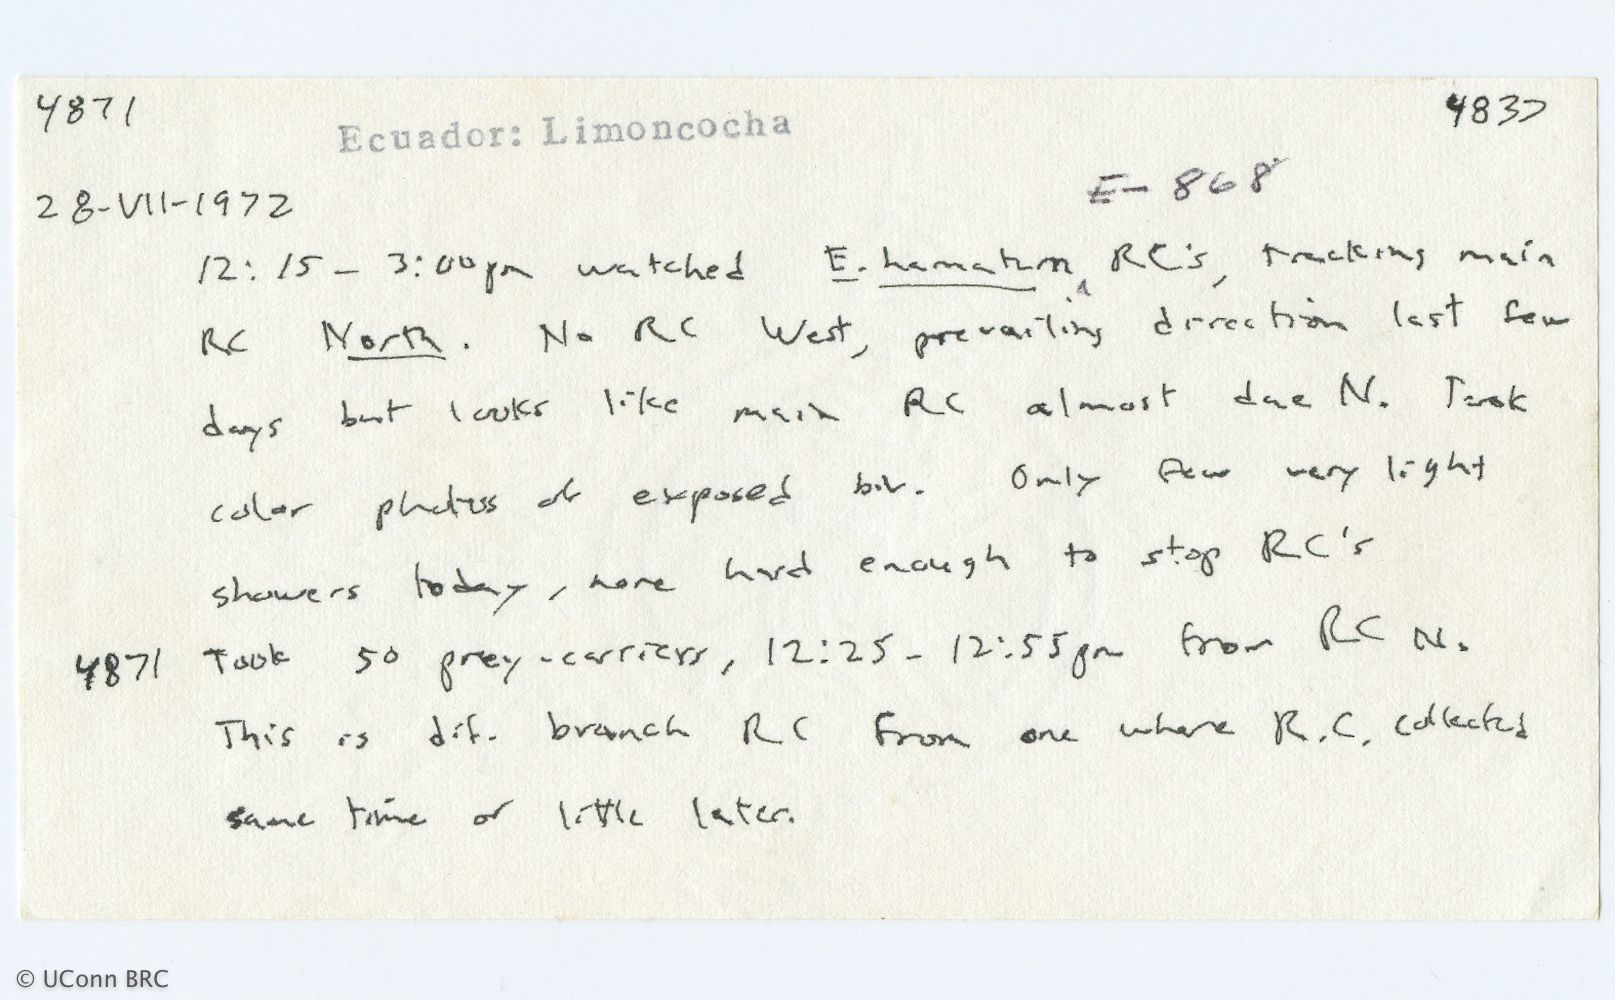 4871
4837
Ecuador: Limoncocha
E-868
28-VII-1972
12:15 - 3:00pm watched E. hamatum RC's, tracking main
RC North. No RC West, prevailing direction last few
days but looks like main RC almost due N. Took
color photos of exposed biv. Only few very light
showers today, none hard enough to stop RC's
4871 Took 50 prey-carriers, 12:25 - 12:55pm from RC N.
This is dif. branch RC from one where R.C. collected
same time or little later.
© UConn BRC